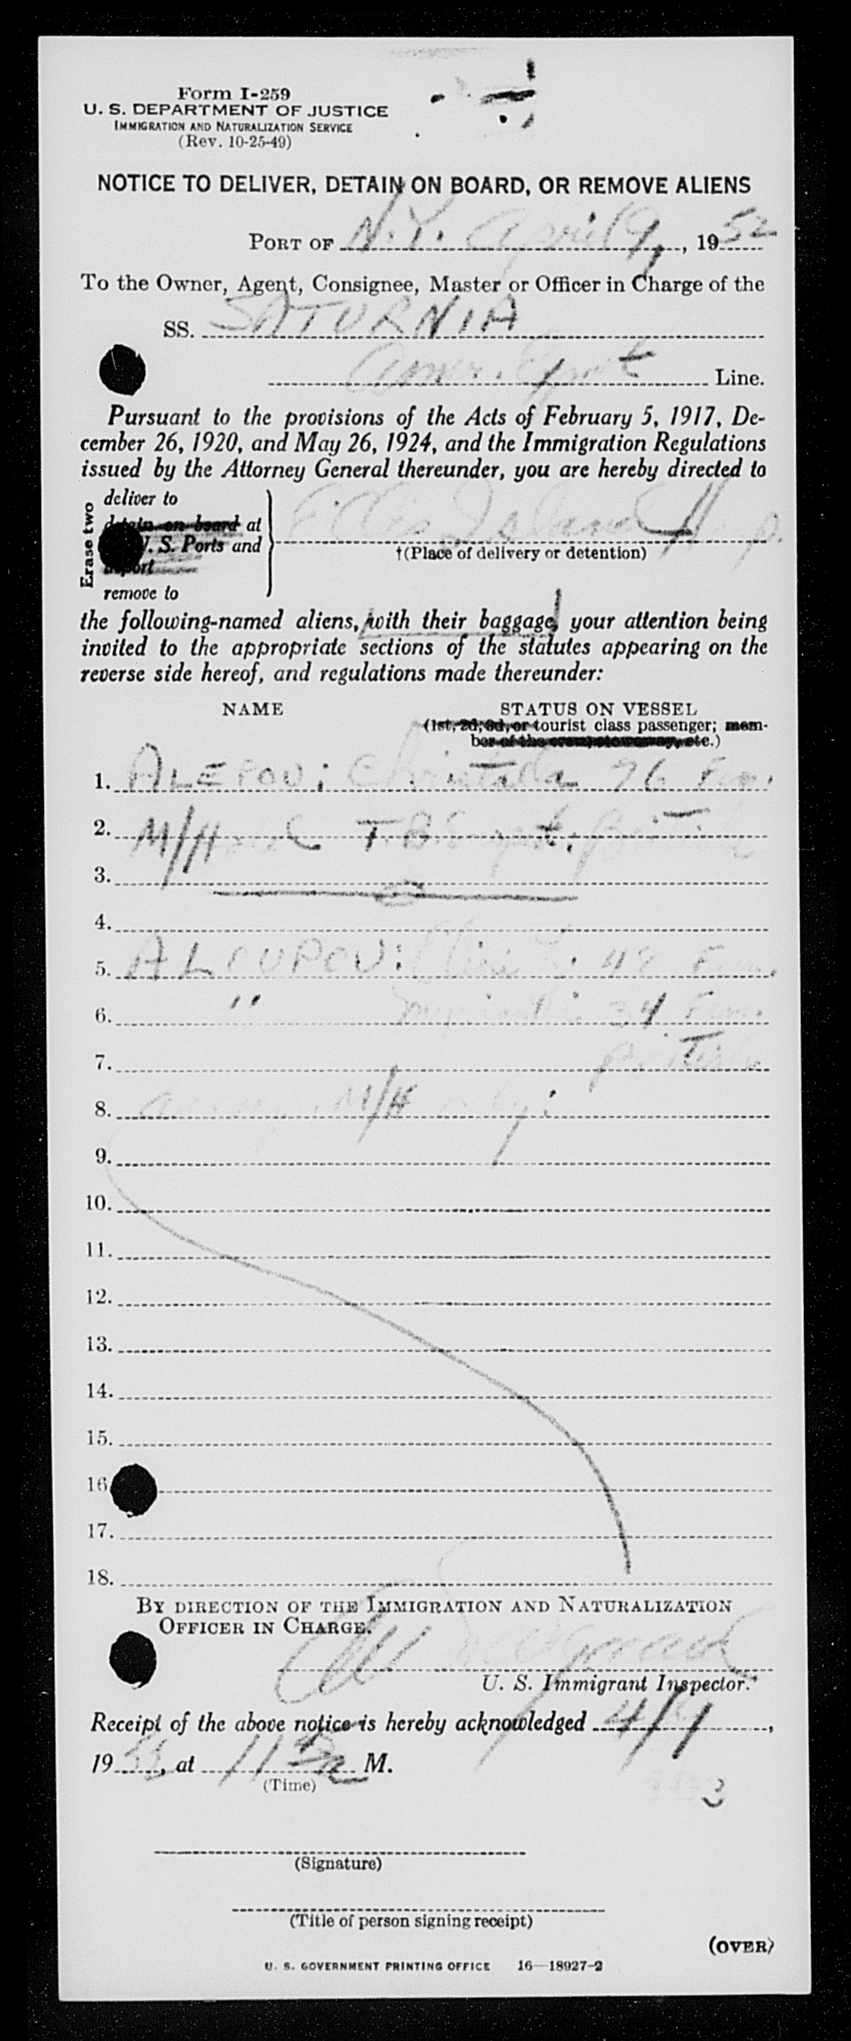 Form I-259
U. S. DEPARTMENT OF JUSTICE
IMMIGRATION AND NATURALIZATION SERVICE
(Rev. 10-25-49)
NOTICE TO DELIVER, DETAIN ON BOARD, OR REMOVE ALIENS
PORT OF N.Y. April 9, 1952
To the Owner, Agent, Consignee, Master or Officer in Charge of the
SS. SATURNIA
Line.
Pursuant to the provisions of the Acts of February 5, 1917, De-
cember 26, 1920, and May 26, 1924, and the Immigration Regulations
issued by the Attorney General thereunder, you are hereby directed to
Erase two
deliver to
detain on board at
U. S. Ports and
deport
remove to
Ellis Island Hosp.
†(Place of delivery or detention)
the following-named aliens, with their baggage, your attention being
invited to the appropriate sections of the statutes appearing on the
reverse side hereof, and regulations made thereunder:
NAME STATUS ON VESSEL
(1st, 2d, 3d, or tourist class passenger; mem-
ber of the crew, stowaway, etc.)
1. ALEPOU: 26 Fem.
2. M/H T.B.
3.
4.
5. ALOUPOU: 48 Fem.
6. " 34 Fem.
7. British
8. M/H only:
9.
10.
11.
12.
13.
14.
15.
16
17.
18.
BY DIRECTION OF THE IMMIGRATION AND NATURALIZATION
OFFICER IN CHARGE.
U. S. Immigrant Inspector.*
Receipt of the above notice is hereby acknowledged 4/9,
19, at 11 M.
(Time)
(Signature)
(Title of person signing receipt)
(OVER)
U. S. GOVERNMENT PRINTING OFFICE 16—18927-2